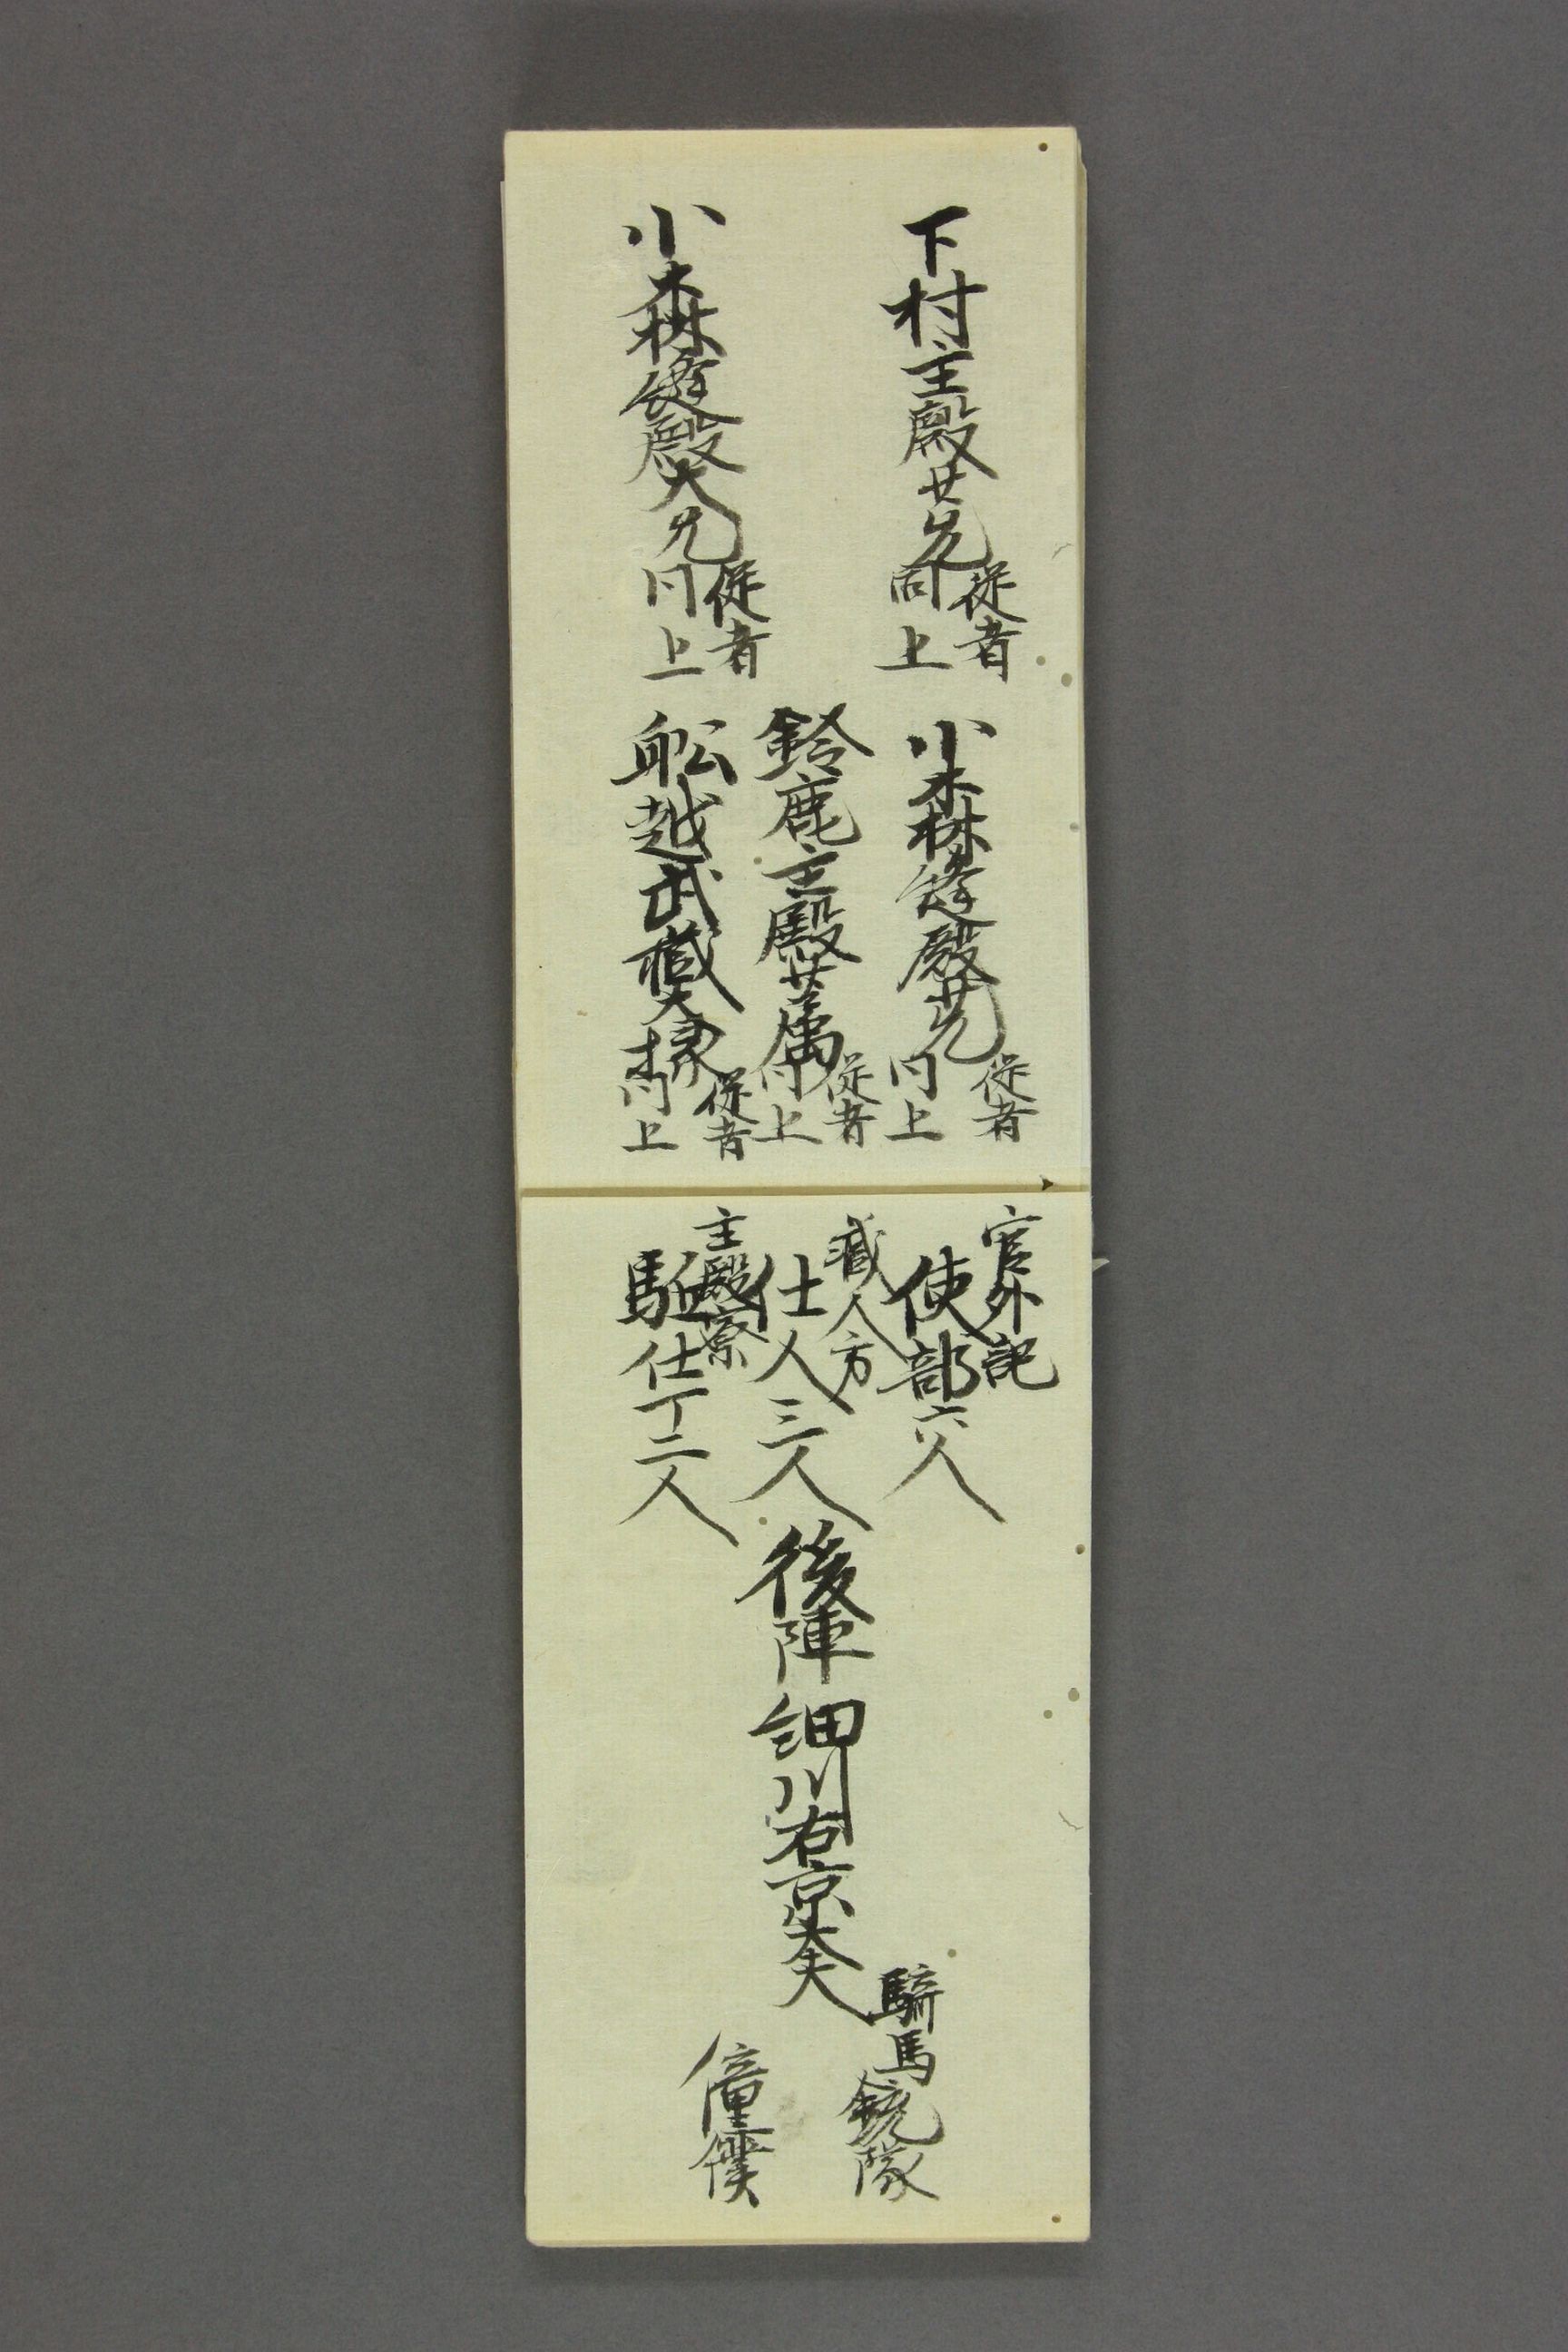 下村主殿少允
従者
同上
小森主殿大允
従者
同上
小森主殿少允
従者
同上
鈴鹿主殿少属
従者
同上
舩越武蔵大掾
従者
同上
官外記
使部六人
蔵人方
仕人三人
主殿寮
駈仕丁二人
後陣細川右京大夫
騎馬
銃隊
僮僕